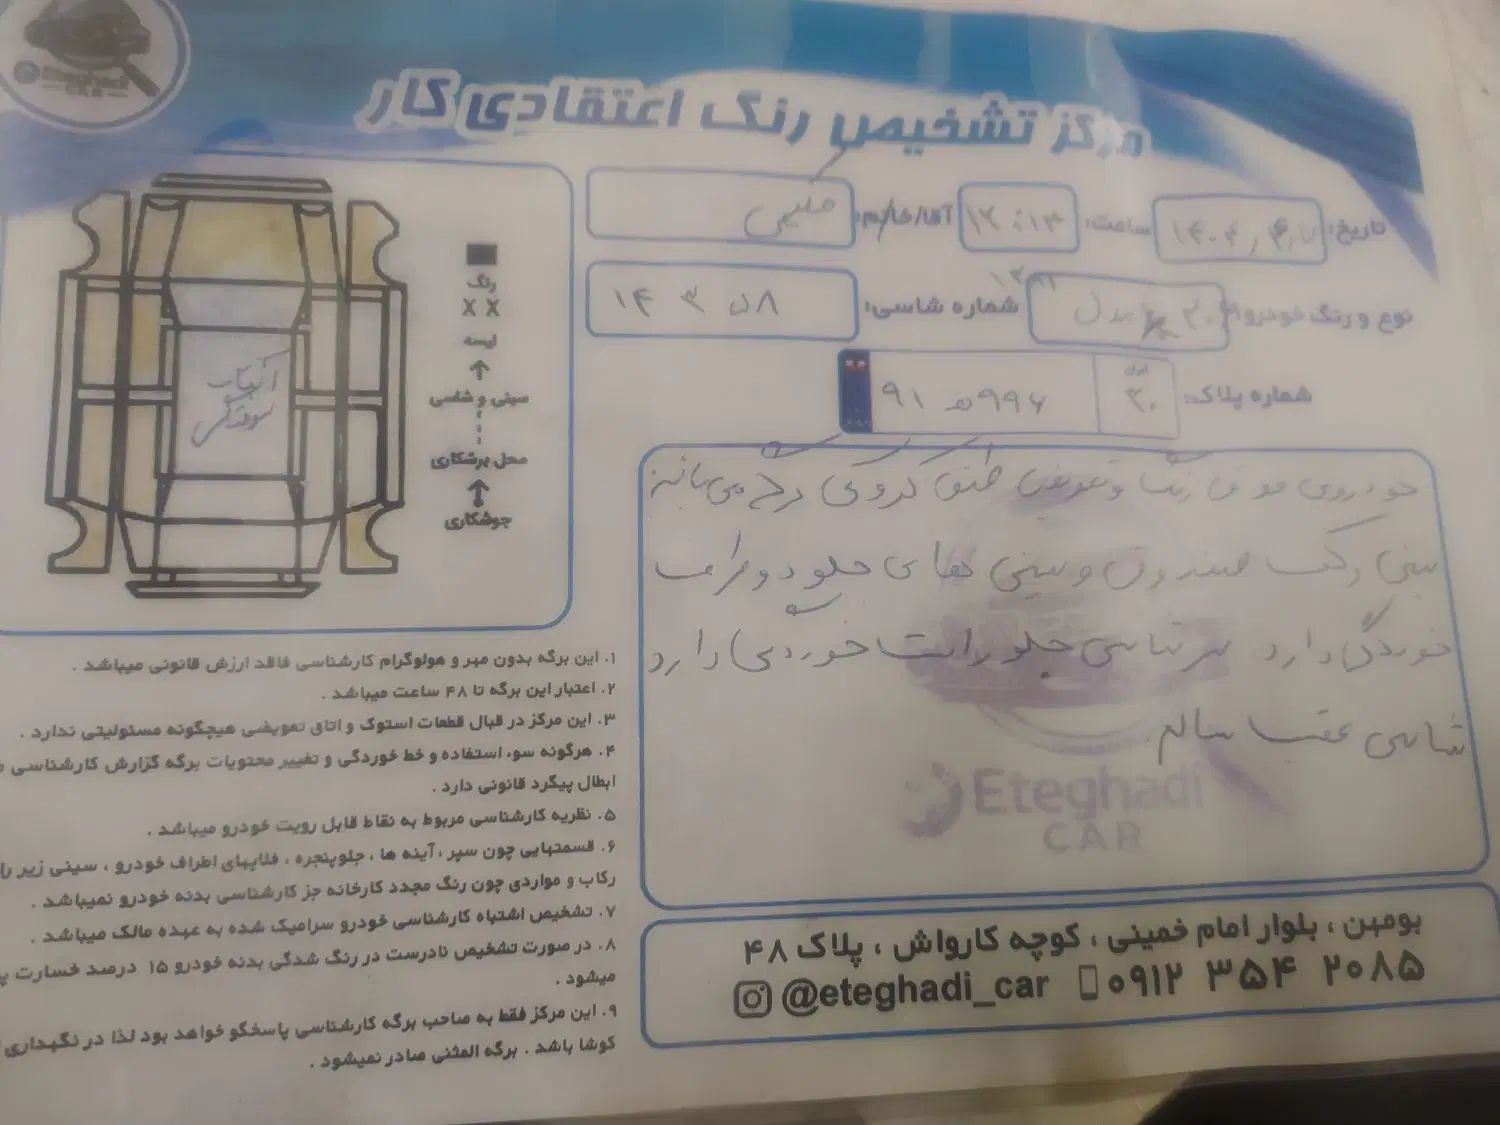 Eteghadi
CAR
مرکز تشخیص رنگ اعتقادی کار
تاریخ: ۱۴۰۴
ساعت: ۱۲:۱۳
آقا/خانم:
نوع و رنگ خودرو: مدل ۱۳۸۲
شماره شاسی: ۱۴۳۵۸
شماره پلاک: ایران ۳۰ ۹۹۶ ه ۹۱
رنگ
X X
لیسه
سینی و شاسی
محل برشکاری
جوشکاری
آفتاب سوختگی
خودروی فوق رنگ و تعویض طبق کروکی برگه می باشد
سینی رکت صندوق و سینی های جلو دو طرف
خوردگی دارد. سرشاسی جلو راست خوردگی دارد
شاسی عقب سالم
Eteghadi
CAR
۱. این برگه بدون مهر و هولوگرام کارشناسی فاقد ارزش قانونی میباشد .
۲. اعتبار این برگه تا ۴۸ ساعت میباشد .
۳. این مرکز در قبال قطعات استوک و اتاق تعویضی هیچگونه مسئولیتی ندارد .
۴. هرگونه سوء استفاده و خط خوردگی و تغییر محتویات برگه گزارش کارشناسی
ابطال پیگرد قانونی دارد .
۵. نظریه کارشناسی مربوط به نقاط قابل رویت خودرو میباشد .
۶. قسمتهایی چون سپر ، آینه ها ، جلوپنجره ، فلاپهای اطراف خودرو ، سینی زیر
رکاب و مواردی چون رنگ مجدد کارخانه جز کارشناسی بدنه خودرو نمیباشد .
۷. تشخیص اشتباه کارشناسی خودرو سرامیک شده به عهده مالک میباشد .
۸. در صورت تشخیص نادرست در رنگ شدگی بدنه خودرو ۱۵ درصد خسارت
میشود .
۹. این مرکز فقط به صاحب برگه کارشناسی پاسخگو خواهد بود لذا در نگهداری
کوشا باشد . برگه المثنی صادر نمیشود .
بومهن ، بلوار امام خمینی ، کوچه کارواش ، پلاک ۴۸
@eteghadi_car ۰۹۱۲ ۳۵۴ ۲۰۸۵